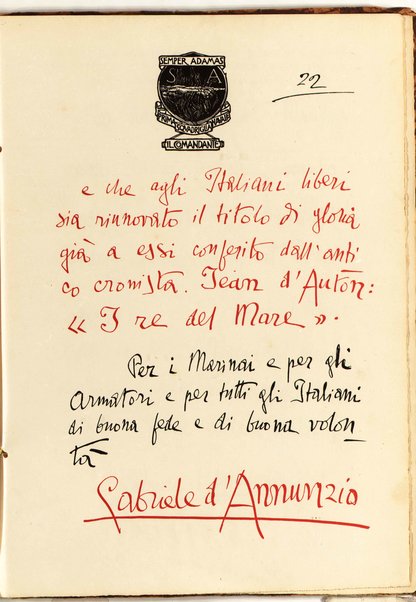 SEMPER ADAMAS
S A
PRIMA SQUADRIGLIA NAVALE
IL COMANDANTE
22
e che agli Italiani liberi
sia rinnovato il titolo di gloria
già a essi conferito dall'anti
co cronista. Jean d'Autòn:
« I re del Mare ».
Per i Marinai e per gli
armatori e per tutti gli Italiani
di buona fede e di buona volon
tà
Gabriele d'Annunzio